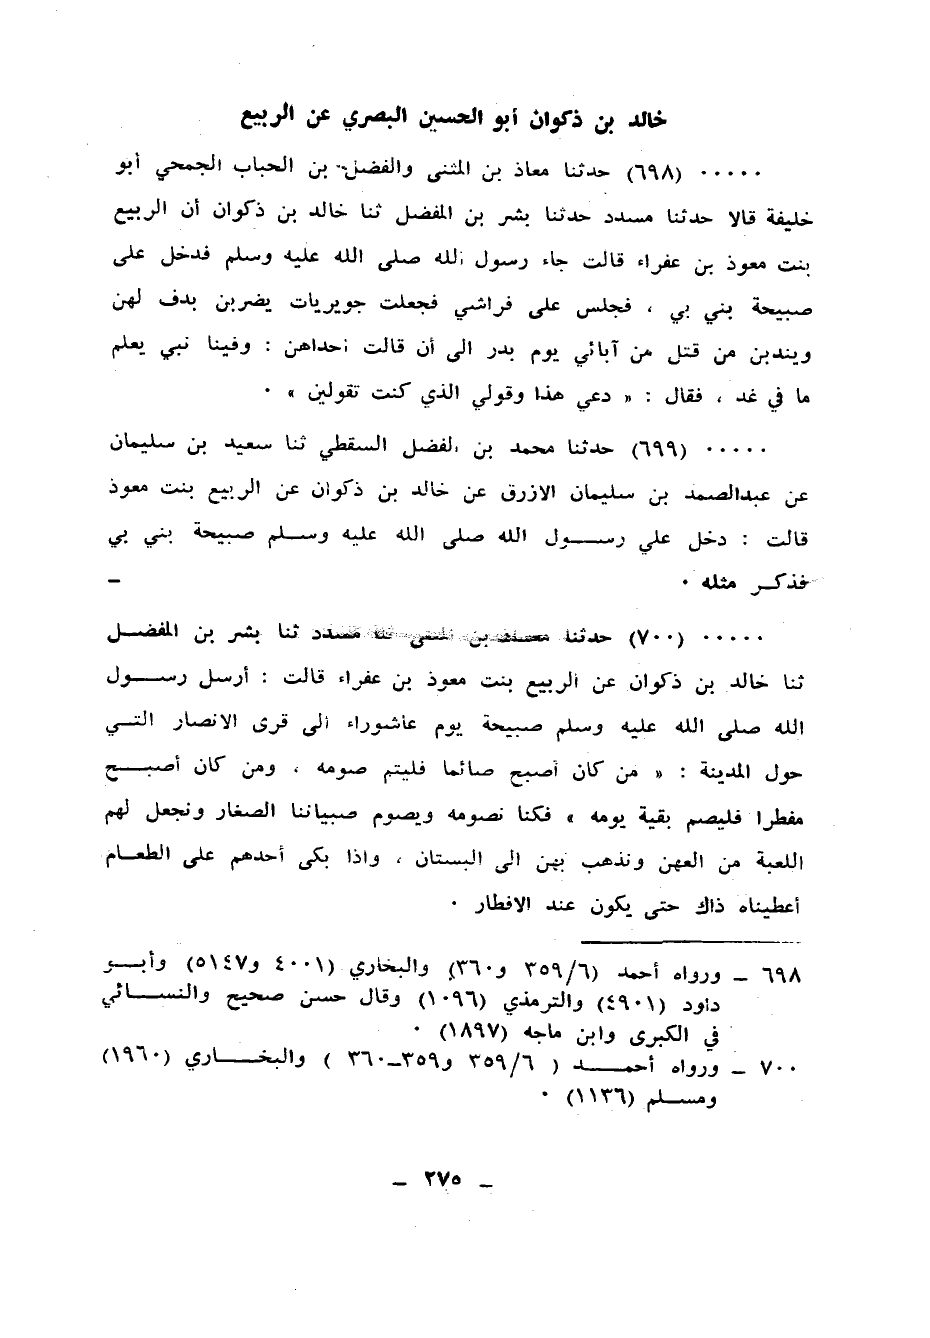 خالد بن ذكوان أبو الحسين البصري عن الربيع
٠٠٠٠٠ (٦٩٨) حدثنا معاذ بن المثنى والفضل بن الحباب الجمحي أبو
خليفة قالا حدثنا مسدد حدثنا بشر بن المفضل ثنا خالد بن ذكوان أن الربيع
بنت معوذ بن عفراء قالت جاء رسول الله صلى الله عليه وسلم فدخل على
صبيحة بني بي ، فجلس على فراشي فجعلت جويريات يضربن بدف لهن
ويندبن من قتل من آبائي يوم بدر الى أن قالت احداهن : وفينا نبي يعلم
ما في غد ، فقال : « دعي هذا وقولي الذي كنت تقولين » ٠
٠٠٠٠٠ (٦٩٩) حدثنا محمد بن الفضل السقطي ثنا سعيد بن سليمان
عن عبدالصمد بن سليمان الازرق عن خالد بن ذكوان عن الربيع بنت معوذ
قالت : دخل علي رسول الله صلى الله عليه وسلم صبيحة بني بي
فذكر مثله ٠ –
٠٠٠٠٠ (٧٠٠) حدثنا معاذ بن المثنى ثنا مسدد ثنا بشر بن المفضل
ثنا خالد بن ذكوان عن الربيع بنت معوذ بن عفراء قالت : أرسل رسول
الله صلى الله عليه وسلم صبيحة يوم عاشوراء الى قرى الانصار التي
حول المدينة : « من كان أصبح صائما فليتم صومه ، ومن كان أصبح
مفطرا فليصم بقية يومه » فكنا نصومه ويصوم صبياننا الصغار ونجعل لهم
اللعبة من العهن ونذهب بهن الى البستان ، واذا بكى أحدهم على الطعام
أعطيناه ذاك حتى يكون عند الافطار ٠
٦٩٨ – ورواه أحمد (٣٥٩/٦ و٣٦٠) والبخاري (٤٠٠١ و٥١٤٧) وأبو
داود (٤٩٠١) والترمذي (١٠٩٦) وقال حسن صحيح والنسائي
في الكبرى وابن ماجه (١٨٩٧) ٠
٧٠٠ – ورواه أحمد ( ٣٥٩/٦ و٣٥٩–٣٦٠ ) والبخاري (١٩٦٠)
ومسلم (١١٣٦) ٠
– ٢٧٥ –